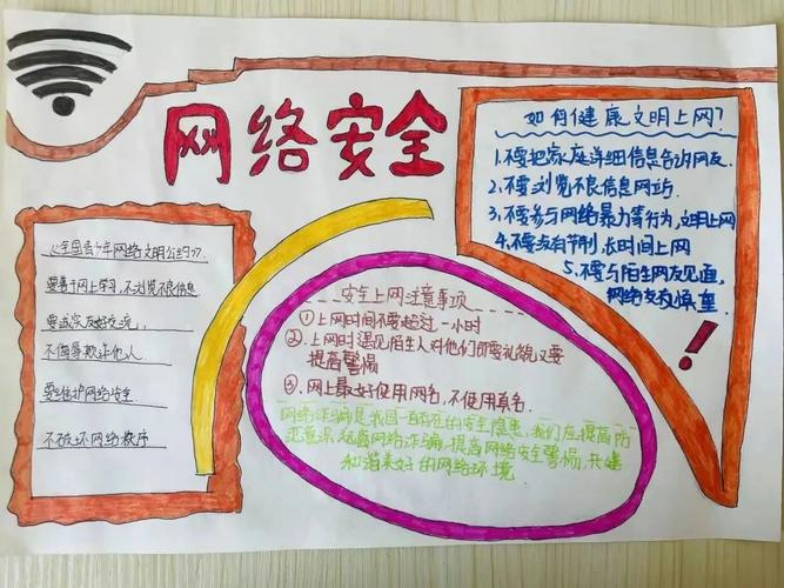 网络安全
《全国青少年网络文明公约》.
要善于网上学习,不浏览不良信息
要诚实友好交流,
不侮辱欺诈他人
要维护网络安全
不破坏网络秩序
安全上网注意事项
①上网时间不要超过一小时
②.上网时遇见陌生人对他们即要礼貌又要
提高警惕
③.网上最好使用网名,不使用真名.
网络诈骗是我国一直存在的安全隐患,我们应提高防
范意识,远离网络诈骗,提高网络安全警惕,共建
和谐美好的网络环境
如何健康文明上网?
1.不要把家庭详细信息告诉网友.
2.不要浏览不良信息网站.
3.不要参与网络暴力等行为,文明上网
4.不要没有节制,长时间上网
5.不要与陌生网友见面,
网络交友慎重
!